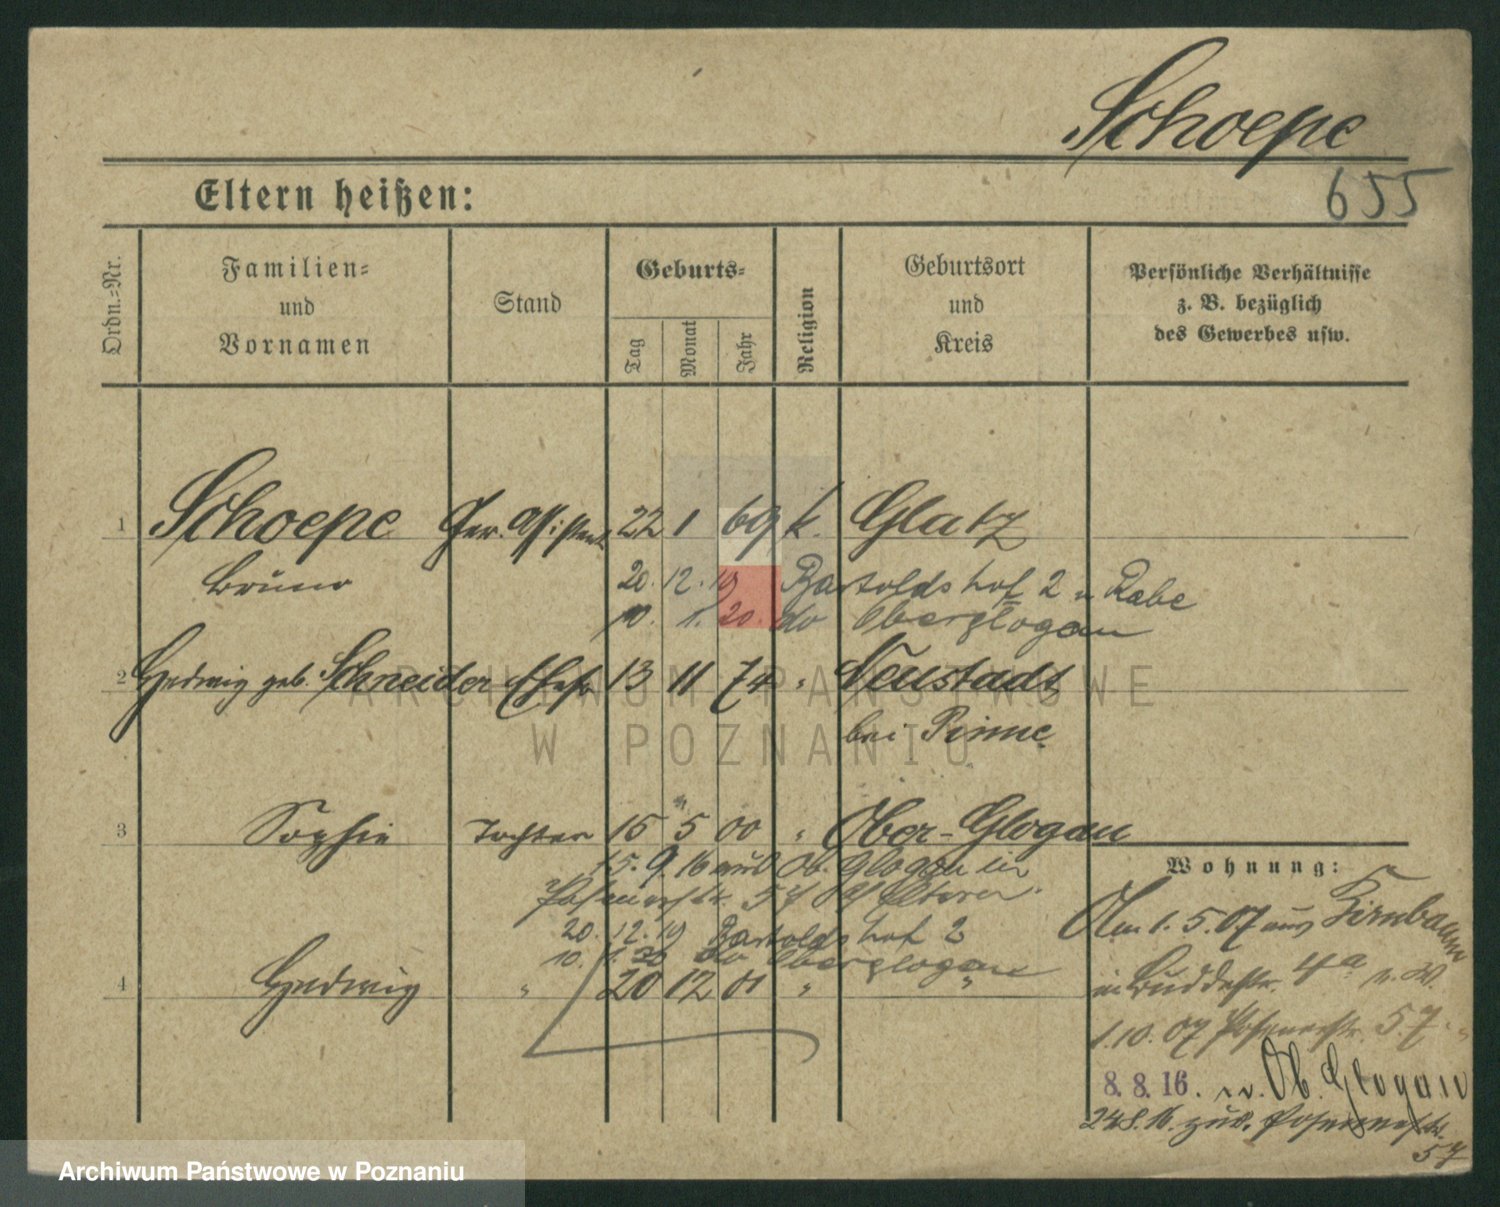 Schoepe
655
Eltern heißen:
Ordn.=Nr.
Familien=
und
Vornamen
Stand
Geburts=
Tag
Monat
Jahr
Religion
Geburtsort
und
Kreis
Persönliche Verhältnisse
z. B. bezüglich
des Gewerbes usw.
1 Schoepe Ger. Assistent 22 1 69 k. Glatz
Bruno
20. 12. 19 Bartoldshof 2 b Rabe
10. 1. 20. do Oberglogau
2 Hedwig geb. Schneider Ehefr 13 11 74 " Neustadt
bei Pinne
3 Sophie Tochter 15 5 00 " Ober-Glogau
15. 9. 16 aus Ob. Glogau in
Posenerstr. 57 Eltern
20. 12. 19 Bartoldshof 2
10. 1. 20 do Oberglogau
4 Hedwig " 20 12 01 " "
Wohnung:
Am 1. 5. 07 aus Birnbaum
in Buddestr. 4a v. W.
1. 10. 07 Posenerstr. 57.
8. 8. 16. n. Ob. Glogau
24.8.16. zur. Posenerstr.
57
ARCHIWUM PAŃSTWOWE
W POZNANIU
Archiwum Państwowe w Poznaniu